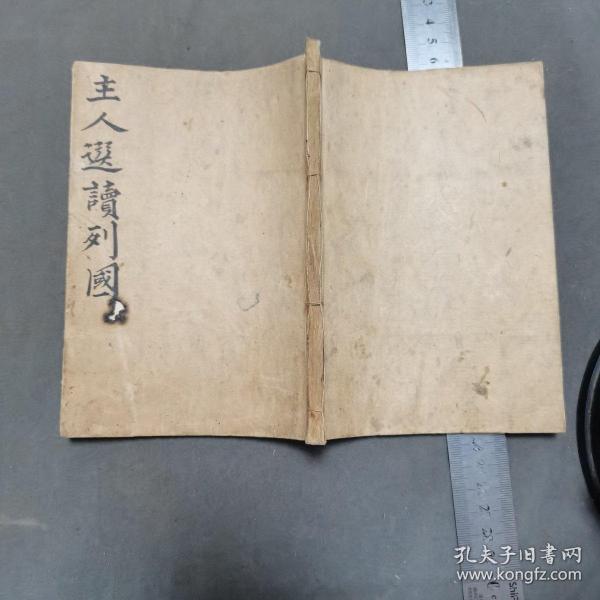 主人選讀列國
4 5 6
孔夫子旧书网
www.kongfz.com